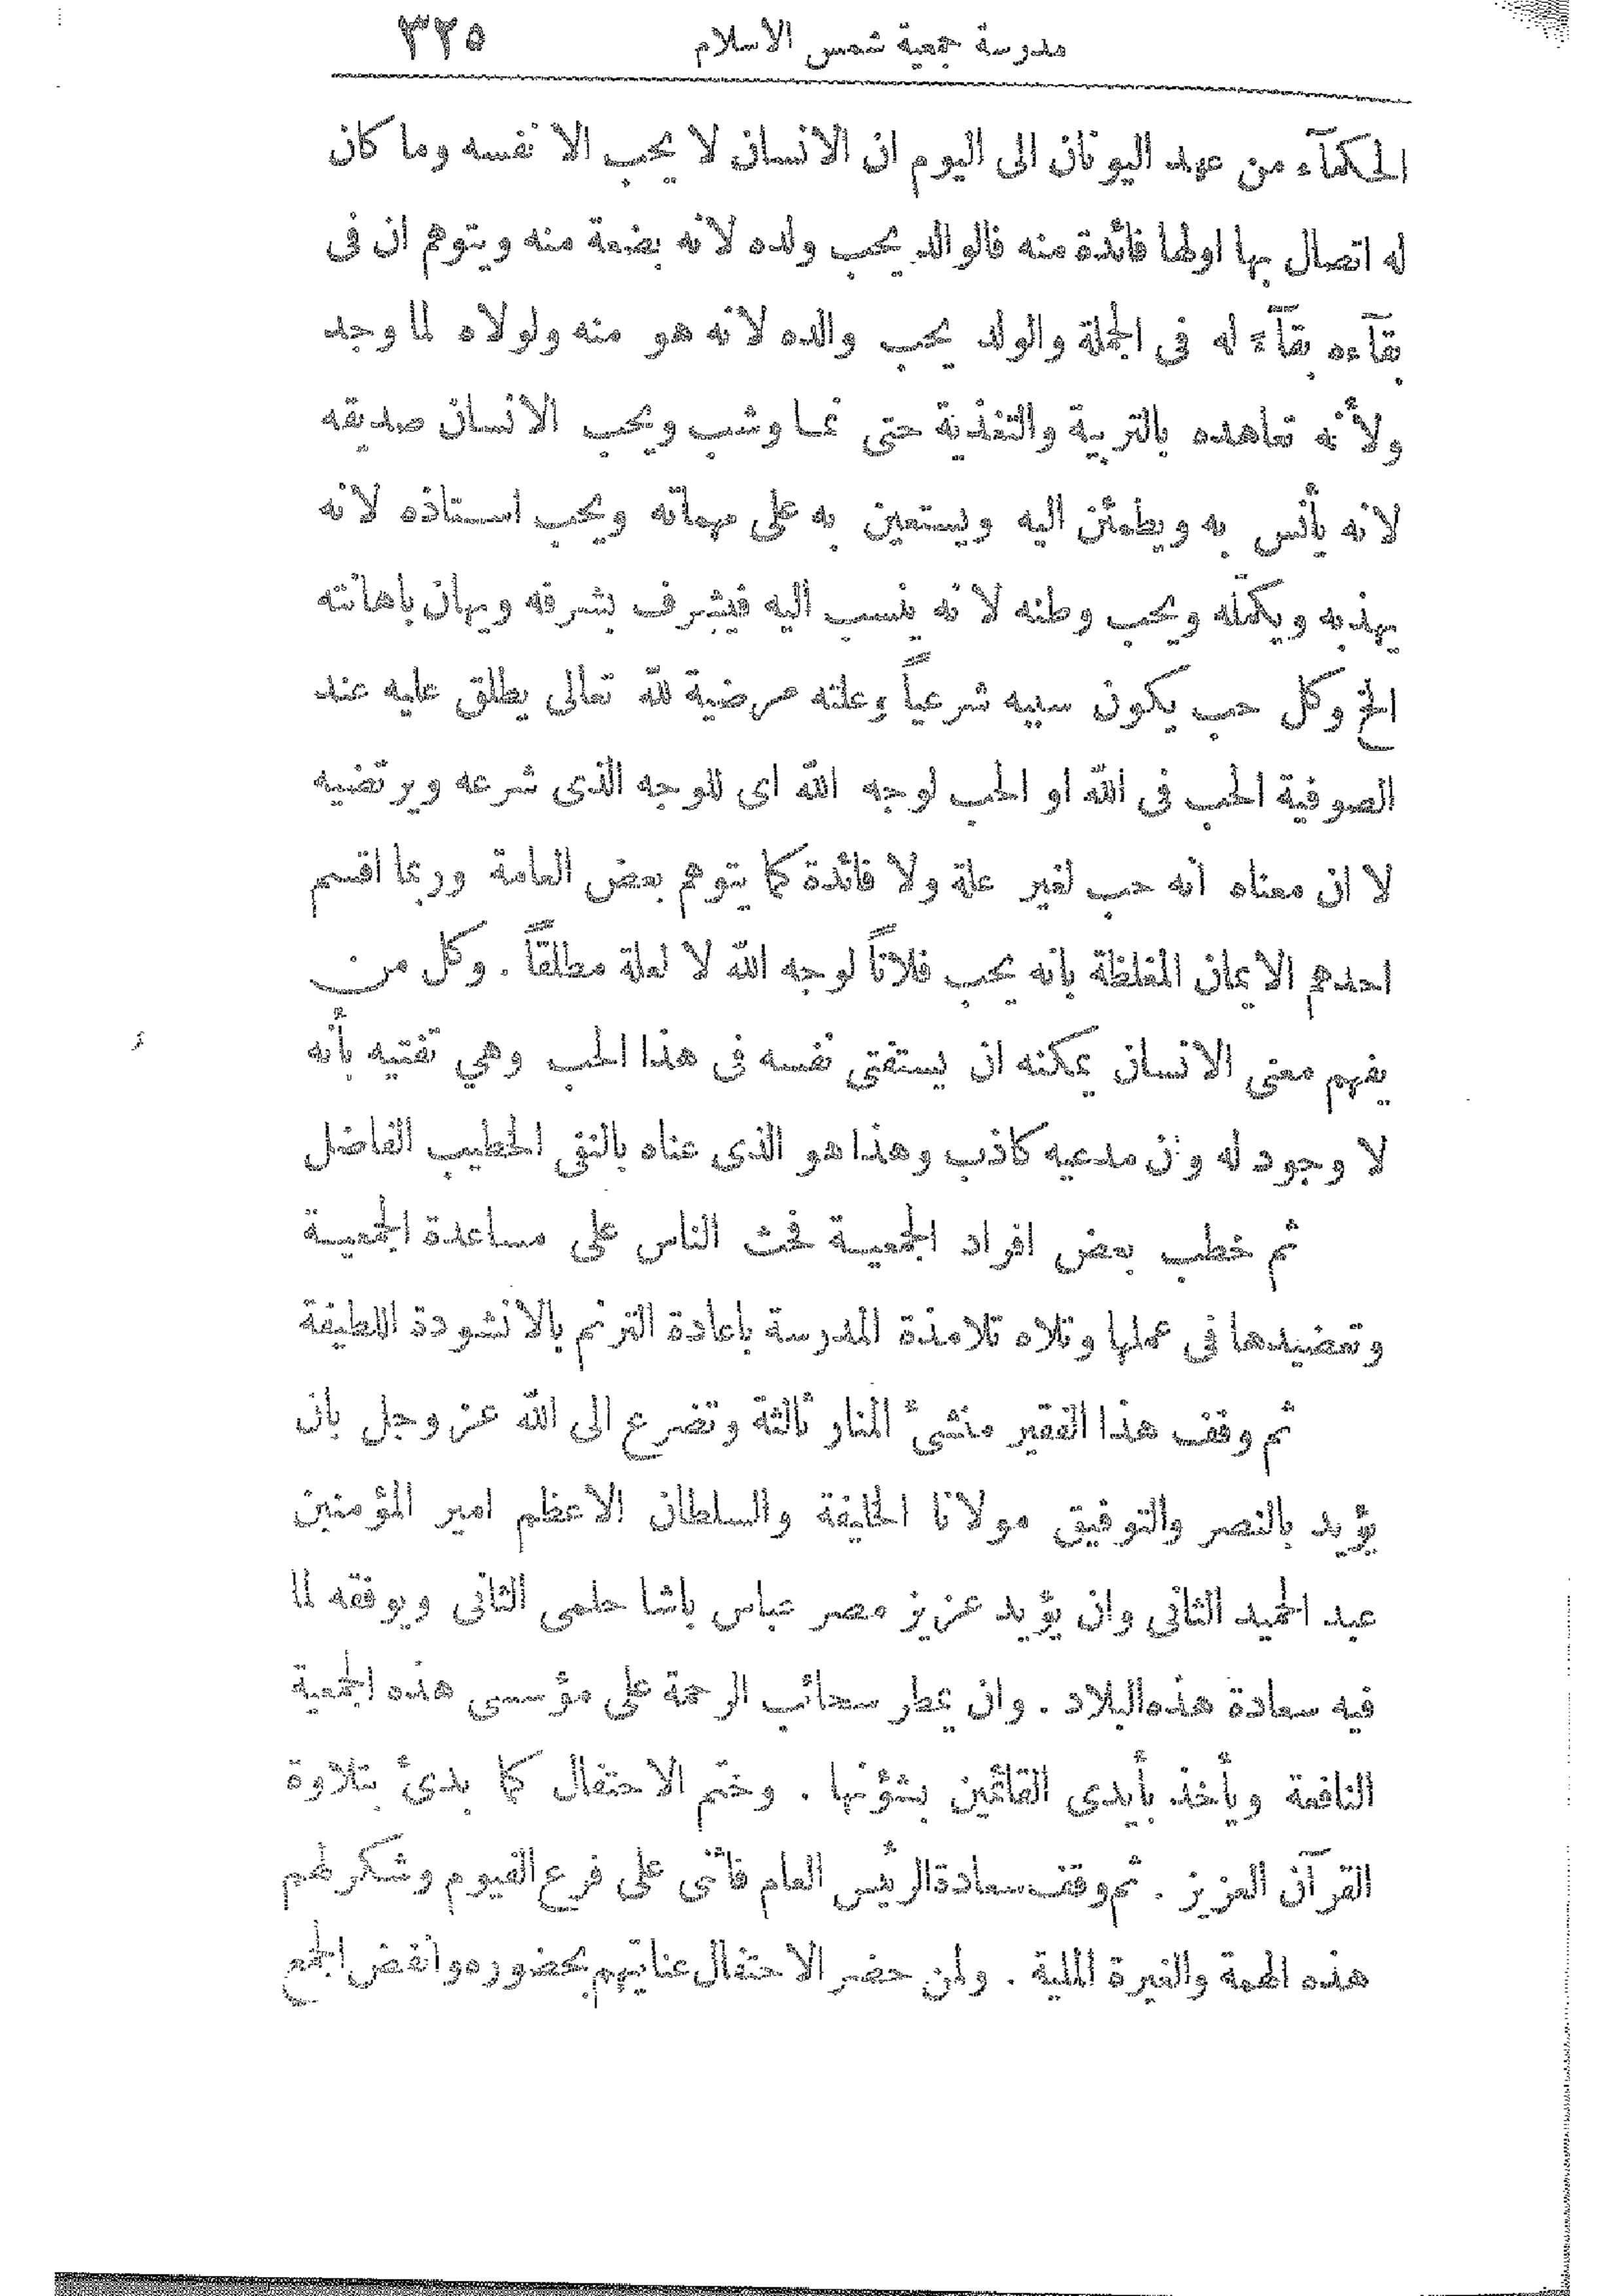 مدرسة جمعية شمس الاسلام ٣٢٥
الحكمآء من عهد اليونان الى اليوم ان الانسان لا يحب الا نفسه وما كان
له اتصال بها اولها فائدة منه فالوالد يحب ولده لانه بضعة منه ويتوهم ان فى
بقآءه بقآءً له فى الجملة والولد يحب والده لانه هو منه ولولاه لما وجد
ولأنه تعاهده بالتربية والتغذية حتى نما وشب ويحب الانسان صديقه
لانه يأنس به ويطمئن اليه ويستعين به على مهماته ويحب استاذه لانه
يهذبه ويكمله ويحب وطنه لانه ينسب اليه فيشرف بشرفه ويهان باهانته
الخ وكل حب يكون سببه شرعياً وعلته مرضية لله تعالى يطلق عليه عند
الصوفية الحب فى الله او الحب لوجه الله اى للوجه الذى شرعه ويرتضيه
لا ان معناه انه حب لغير علة ولا فائدة كما يتوهم بعض العامة وربما اقسم
احدهم الايمان المغلظة بانه يحب فلاناً لوجه الله لا لعلة مطلقاً . وكل من
يفهم معنى الانسان يمكنه ان يستفتى نفسه فى هذا الحب وهي تفتيه بأنه
لا وجود له وان مدعيه كاذب وهذا هو الذى عناه بالنفى الخطيب الفاضل
ثم خطب بعض افراد الجمعية فحث الناس على مساعدة الجمعية
وتعضيدها فى عملها وتلاه تلامذة المدرسة باعادة الترنم بالانشودة اللطيفة
ثم وقف هذا الفقير منشئ المنار ثالثة وتضرع الى الله عز وجل بان
يؤيد بالنصر والتوفيق مولانا الخليفة والسلطان الاعظم امير المؤمنين
عبد الحميد الثانى وان يؤيد عزيز مصر عباس باشا حلمى الثانى ويوفقه لما
فيه سعادة هذه البلاد . وان يمطر سحائب الرحمة على مؤسسى هذه الجمعية
النافعة ويأخذ بأيدى القائمين بشؤنها . وختم الاحتفال كما بدئ بتلاوة
القرآن العزيز . ثم وقف سعادة الرئيس العام فاثنى على فرع الفيوم وشكر لهم
هذه الهمة والغيرة الملية . ولمن حضر الاحتفال عنايتهم بحضوره وانفض الجمع